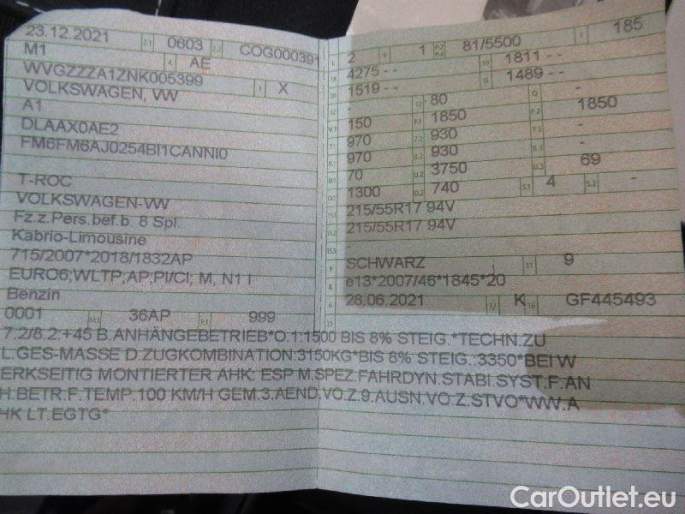 23.12.2021 0603 COG000391
M1 AE
WVGZZZA1ZNK005399 X
VOLKSWAGEN, VW
A1
DLAAX0AE2
FM6FM6AJ0254BI1CANNI0
T-ROC
VOLKSWAGEN-VW
Fz.z.Pers.bef.b. 8 Spl.
Kabrio-Limousine
715/2007*2018/1832AP
EURO6;WLTP;AP:PI/CI; M, N1 I
Benzin
0001 36AP 999
2 1 81/5500 185
4275 - - 1811 - -
1519 - - 1489 - -
- 80 -
150 1850 1850
970 930 -
970 930 -
70 3750 69
1300 740 4 -
215/55R17 94V
215/55R17 94V
SCHWARZ 9
e13*2007/46*1845*20
28.06.2021 K GF445493
7.2/8.2:+45 B.ANHÄNGEBETRIEB*O.1:1500 BIS 8% STEIG.*TECHN.ZU
L.GES-MASSE D.ZUGKOMBINATION:3150KG*BIS 8% STEIG.:3350*BEI W
ERKSEITIG MONTIERTER AHK: ESP M.SPEZ.FAHRDYN.STABI.SYST.F.AN
H.BETR.F.TEMP.100 KM/H GEM.3.AEND.VO.Z.9.AUSN.VO.Z.STVO*WW.A
HK LT.EGTG*
CarOutlet.eu